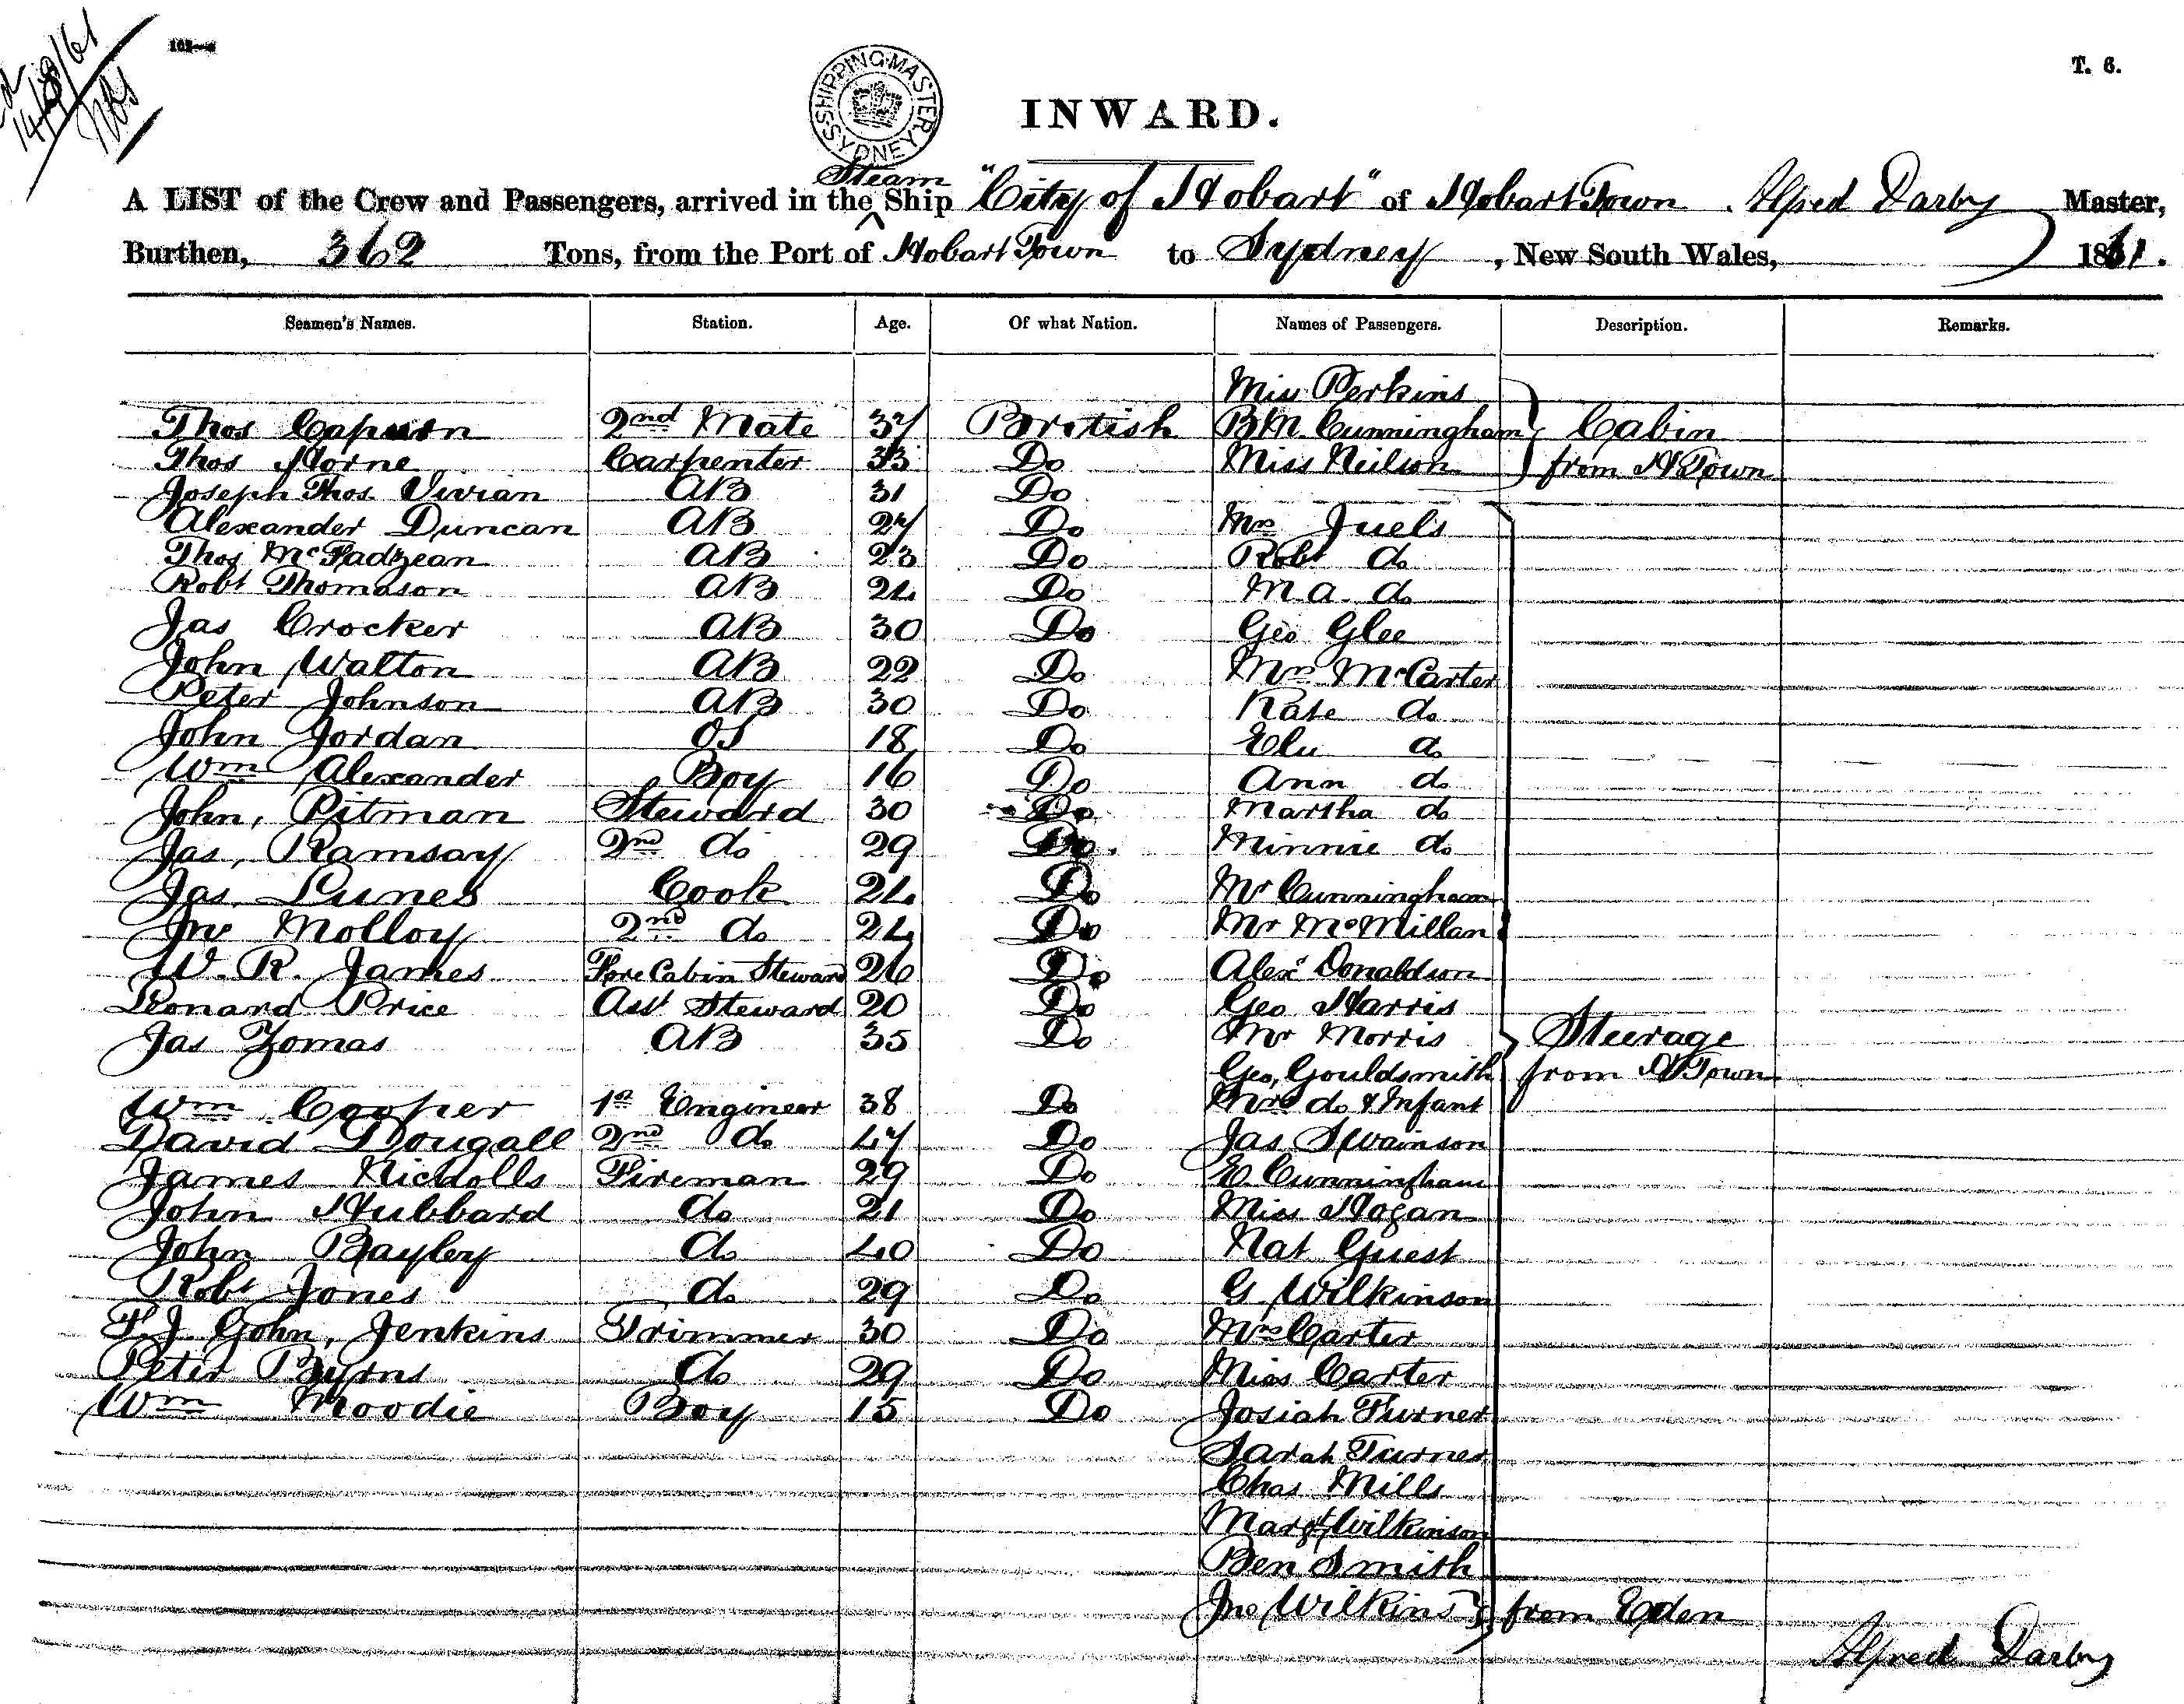 14/8/61
T. 6.
SHIPPING MASTER SYDNEY
INWARD.
Steam
A LIST of the Crew and Passengers, arrived in the ^ Ship "City of Hobart" of Hobart Town Alfred Darby Master,
Burthen, 362 Tons, from the Port of Hobart Town to Sydney, New South Wales, 1861.
Seamen's Names. Station. Age. Of what Nation. Names of Passengers. Description. Remarks.
Miss Perkins
Thos 2nd Mate 37 British B M Cunningham Cabin
Thos Horne Carpenter 33 Do Miss Neilson from H Town
Joseph Thos Vivian AB 31 Do
Alexander Duncan AB 27 Do Mrs Juels
Thos McFadzean AB 23 Do Robt do
Robt Thomason AB 24 Do M a do
Jas Crocker AB 30 Do Geo Glee
John Walton AB 22 Do Mrs McCarter
Peter Johnson AB 30 Do Kate do
John Jordan OS 18 Do do
Wm Alexander Boy 16 Do Ann do
John, Pitman Steward 30 Do Martha do
Jas, Ramsay 2nd do 29 Do. Minnie do
Jas, Lunes Cook 24 Do Mr Cunningham
Jno Molloy 2nd do 24 Do Mr McMillan
W. R. James Fore Cabin Steward 26 Do Alexr Donaldson
Leonard Price Asst Steward 20 Do Geo Harris
Jas Zomas AB 35 Do Mr Morris Steerage
Geo, Gouldsmith from H Town
Wm Cooper 1st Engineer 38 Do Mrs do & Infant
David Dougall 2nd do 47 Do Jas Swainson
James Nicholls Fireman 29 Do E. Cunningham
John Hubbard do 21 Do Miss Hogan
John Bayley do 40 Do Nat Guest
Robt Jones do 29 Do G Wilkinson
T. J. John, Jenkins Trimmer 30 Do Mrs Carter
Peter Byrns do 29 Do Miss Carter
Wm Moodie Boy 15 Do Josiah Turner
Sarah Turner
Chas Mills
Margt Wilkinson
Ben Smith
Jno Wilkins } from Eden
Alfred Darby